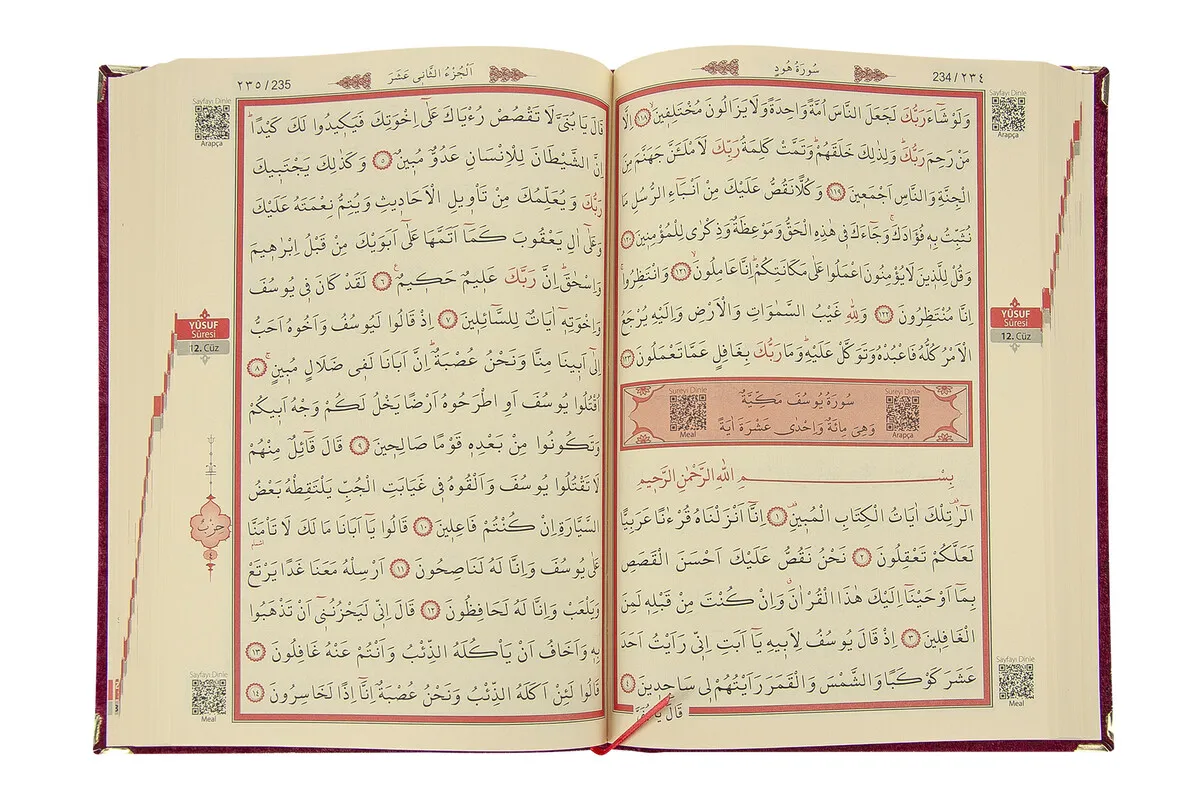 234 / ٢٣٤
سُورَةُ هُودٍ
Sayfayı Dinle
Arapça
وَلَوْ شَٓاءَ رَبُّكَ لَجَعَلَ النَّاسَ اُمَّةً وَاحِدَةً وَلَا يَزَالُونَ مُخْتَلِفٖينَۙ ﴿١١٨﴾ اِلَّا
مَنْ رَحِمَ رَبُّكَۜ وَلِذٰلِكَ خَلَقَهُمْۜ وَتَمَّتْ كَلِمَةُ رَبِّكَ لَاَمْلَـَٔنَّ جَهَنَّمَ مِنَ
الْجِنَّةِ وَالنَّاسِ اَجْمَعٖينَ ﴿١١٩﴾ وَكُلًّا نَقُصُّ عَلَيْكَ مِنْ اَنْـبَٓاءِ الرُّسُلِ مَا
نُثَبِّتُ بِهٖ فُؤٰادَكَۚ وَجَٓاءَكَ فٖي هٰذِهِ الْحَقُّ وَمَوْعِظَةٌ وَذِكْرٰى لِلْمُؤْمِنٖينَ ﴿١٢٠﴾
وَقُلْ لِلَّذٖينَ لَا يُؤْمِنُونَ اعْمَلُوا عَلٰى مَكَانَتِكُمْۜ اِنَّا عَامِلُونَۙ ﴿١٢١﴾ وَانْتَظِرُواۚ
اِنَّا مُنْتَظِرُونَ ﴿١٢٢﴾ وَلِلّٰهِ غَيْبُ السَّمٰوَاتِ وَالْاَرْضِ وَاِلَيْهِ يُرْجَعُ
الْاَمْرُ كُلُّهُ فَاعْبُدْهُ وَتَوَكَّلْ عَلَيْهِۜ وَمَا رَبُّكَ بِغَافِلٍ عَمَّا تَعْمَلُونَ ﴿١٢٣﴾
Sûreyi Dinle
Meal
سُورَةُ يُوسُفَ مَكِّيَّةٌ
وَهِيَ مِائَةٌ وَاِحْدٰى عَشْرَةَ اٰيَةً
Sûreyi Dinle
Arapça
بِسْــــــــــمِ اللّٰهِ الرَّحْمٰنِ الرَّحٖيمِ
الٓرٰ۠ تِلْكَ اٰيَاتُ الْكِتَابِ الْمُبٖينِ۠ ﴿١﴾ اِنَّٓا اَنْزَلْنَاهُ قُرْءٰنًا عَرَبِيًّا
لَعَلَّكُمْ تَعْقِلُونَ ﴿٢﴾ نَحْنُ نَقُصُّ عَلَيْكَ اَحْسَنَ الْقَصَصِ
بِمَٓا اَوْحَيْنَٓا اِلَيْكَ هٰذَا الْقُرْاٰنَۗ وَاِنْ كُنْتَ مِنْ قَبْلِهٖ لَمِنَ
الْغَافِلٖينَ ﴿٣﴾ اِذْ قَالَ يُوسُفُ لِاَبٖيهِ يَٓا اَبَتِ اِنّٖي رَاَيْتُ اَحَدَ
عَشَرَ كَوْكَبًا وَالشَّمْسَ وَالْقَمَرَ رَاَيْتُهُمْ لٖي سَاجِدٖينَ ﴿٤﴾
قَالَ يَا بُنَيَّ
YÛSUF
Sûresi
12. Cüz
Sayfayı Dinle
Meal
٢٣٥ / 235
اَلْجُزْءُ الثَّانٖي عَشَرَ
Sayfayı Dinle
Arapça
قَالَ يَا بُنَيَّ لَا تَقْصُصْ رُءْيَاكَ عَلٰٓى اِخْوَتِكَ فَيَكٖيدُوا لَكَ كَيْدًاۜ
اِنَّ الشَّيْطَانَ لِلْاِنْسَانِ عَدُوٌّ مُبٖينٌ ﴿٥﴾ وَكَذٰلِكَ يَجْتَبٖيكَ
رَبُّكَ وَيُعَلِّمُكَ مِنْ تَأْوٖيلِ الْاَحَادٖيثِ وَيُتِمُّ نِعْمَتَهُ عَلَيْكَ
وَعَلٰٓى اٰلِ يَعْقُوبَ كَمَٓا اَتَمَّهَا عَلٰٓى اَبَوَيْكَ مِنْ قَبْلُ اِبْرٰهٖيمَ
وَاِسْحٰقَۜ اِنَّ رَبَّكَ عَلٖيمٌ حَكٖيمٌ۟ ﴿٦﴾ لَقَدْ كَانَ فٖي يُوسُفَ
وَاِخْوَتِهٖٓ اٰيَاتٌ لِلسَّٓائِلٖينَ ﴿٧﴾ اِذْ قَالُوا لَيُوسُفُ وَاَخُوهُ اَحَبُّ
اِلٰٓى اَبٖينَا مِنَّا وَنَحْنُ عُصْبَةٌۜ اِنَّ اَبَانَا لَفٖي ضَلَالٍ مُبٖينٍۚ ﴿٨﴾
اُقْتُلُوا يُوسُفَ اَوِ اطْرَحُوهُ اَرْضًا يَخْلُ لَكُمْ وَجْهُ اَبٖيكُمْ
وَتَكُونُوا مِنْ بَعْدِهٖ قَوْمًا صَالِحٖينَ ﴿٩﴾ قَالَ قَٓائِلٌ مِنْهُمْ
لَا تَقْتُلُوا يُوسُفَ وَاَلْقُوهُ فٖي غَيَابَتِ الْجُبِّ يَلْتَقِطْهُ بَعْضُ
السَّيَّارَةِ اِنْ كُنْتُمْ فَاعِلٖينَ ﴿١٠﴾ قَالُوا يَٓا اَبَانَا مَا لَكَ لَا تَأْمَنَّۭا
عَلٰى يُوسُفَ وَاِنَّا لَهُ لَنَاصِحُونَ ﴿١١﴾ اَرْسِلْهُ مَعَنَا غَدًا يَرْتَعْ
وَيَلْعَبْ وَاِنَّا لَهُ لَحَافِظُونَ ﴿١٢﴾ قَالَ اِنّٖي لَيَحْزُنُنٖٓي اَنْ تَذْهَبُوا
بِهٖ وَاَخَافُ اَنْ يَأْكُلَهُ الذِّئْبُ وَاَنْتُمْ عَنْهُ غَافِلُونَ ﴿١٣﴾
قَالُوا لَئِنْ اَكَلَهُ الذِّئْبُ وَنَحْنُ عُصْبَةٌ اِنَّٓا اِذًا لَخَاسِرُونَ ﴿١٤﴾
YÛSUF
Sûresi
12. Cüz
حزب
٤
Sayfayı Dinle
Meal